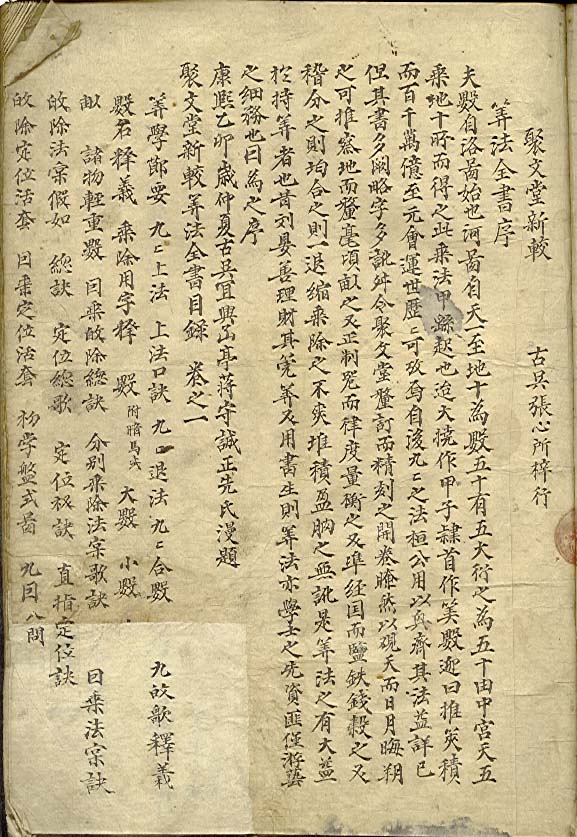 聚文堂新較
古吳張心所梓行
筭法全書序
夫數自洛啚始也河啚自天一至地十為數五十有五大衍之為五十由中宮天五
乘地十所而得之此乘法甲繇起也迨大撓作甲子隸首作筭數迎日推筴積
而百千萬億至元會運世歷〻可攷焉自後九〻之法桓公用以興齊其法益詳已
但其書多闕略字多訛舛今聚文堂釐訂而精刻之開卷瞭然以硯天而日月晦朔
之可推察地而釐毫頃畝之又正制器而律度量衡之又準經国而鹽鉄錢穀之又
稽分之則均合之則一退縮乘除之不爽堆積盈朒之無訛是筭法之有大益
扵持筭者也昔刘晏善理財其筦筭又用書生則筭法亦學士之先資匪僅游藝
之細務也因為之序
康熙乙卯歲仲夏古吳冝興函亭蔣守誠正先氏漫題
聚文堂新較筭法全書目録 卷之一
筭學節要 九〻上法 上法口訣 九〻退法九〻合數
數名釋義 乘除用字釋 數附暗馬式 大數 小數
畝 諸物輕重數 因乘㱕除總訣 分别乘除法宗歌訣
㱕除法宗假如 總訣 定位總歌 定位秘訣 直指定位訣
㱕除定位活套 因乘定位活套 初学盤式啚 九因八問
九㱕歌釋義
因乘法宗訣